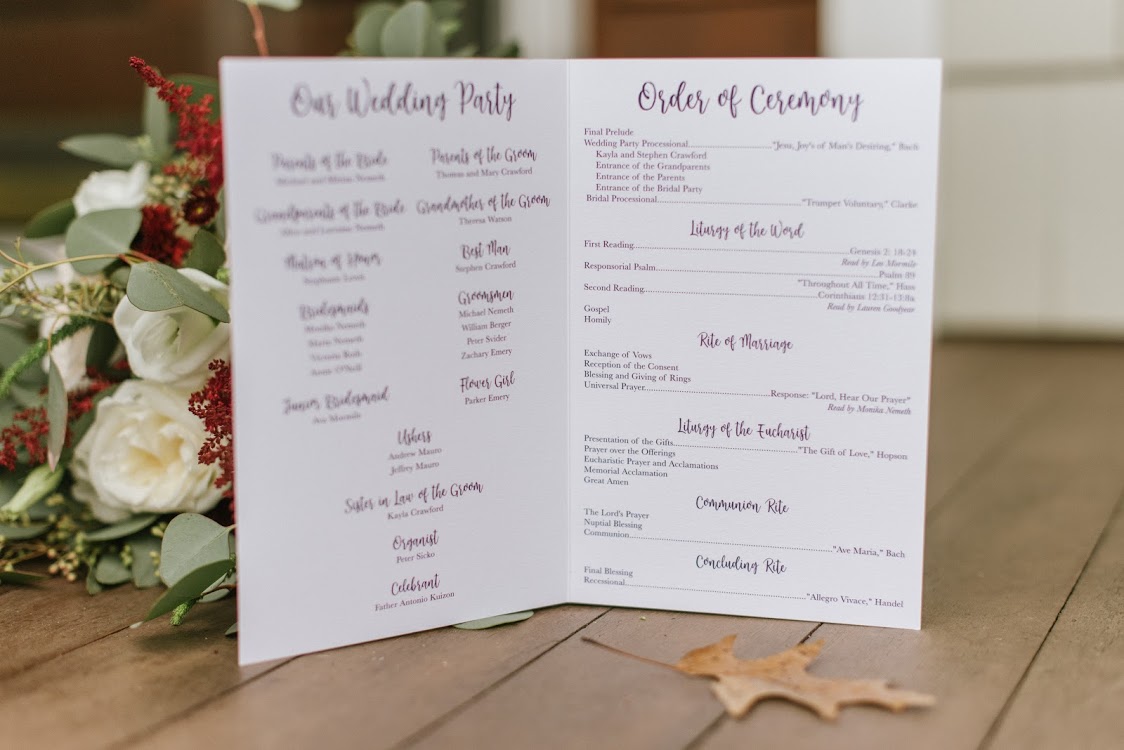 Our Wedding Party
Parents of the Bride
Nemeth
Grandparents of the Bride
Nemeth
Matron of Honor
Stephanie
Bridesmaids
Monika Nemeth
Marie Nemeth
Victoria Roth
Annie O'Neill
Junior Bridesmaid
Ava Mormile
Parents of the Groom
Thomas and Mary Crawford
Grandmother of the Groom
Theresa Watson
Best Man
Stephen Crawford
Groomsmen
Michael Nemeth
William Berger
Peter Svider
Zachary Emery
Flower Girl
Parker Emery
Ushers
Andrew Mauro
Jeffrey Mauro
Sister in Law of the Groom
Kayla Crawford
Organist
Peter Sicko
Celebrant
Father Antonio Kuizon
Order of Ceremony
Final Prelude
Wedding Party Processional "Jesu, Joy's of Man's Desiring," Bach
Kayla and Stephen Crawford
Entrance of the Grandparents
Entrance of the Parents
Entrance of the Bridal Party
Bridal Processional "Trumper Voluntary," Clarke
Liturgy of the Word
First Reading Genesis 2: 18-24
Read by Les Mormile
Responsorial Psalm Psalm 89
"Throughout All Time," Haas
Second Reading Corinthians 12:31-13:8a
Read by Lauren Goodyear
Gospel
Homily
Rite of Marriage
Exchange of Vows
Reception of the Consent
Blessing and Giving of Rings
Universal Prayer Response: "Lord, Hear Our Prayer"
Read by Monika Nemeth
Liturgy of the Eucharist
Presentation of the Gifts "The Gift of Love," Hopson
Prayer over the Offerings
Eucharistic Prayer and Acclamations
Memorial Acclamation
Great Amen
Communion Rite
The Lord's Prayer
Nuptial Blessing
Communion "Ave Maria," Bach
Concluding Rite
Final Blessing
Recessional "Allegro Vivace," Handel